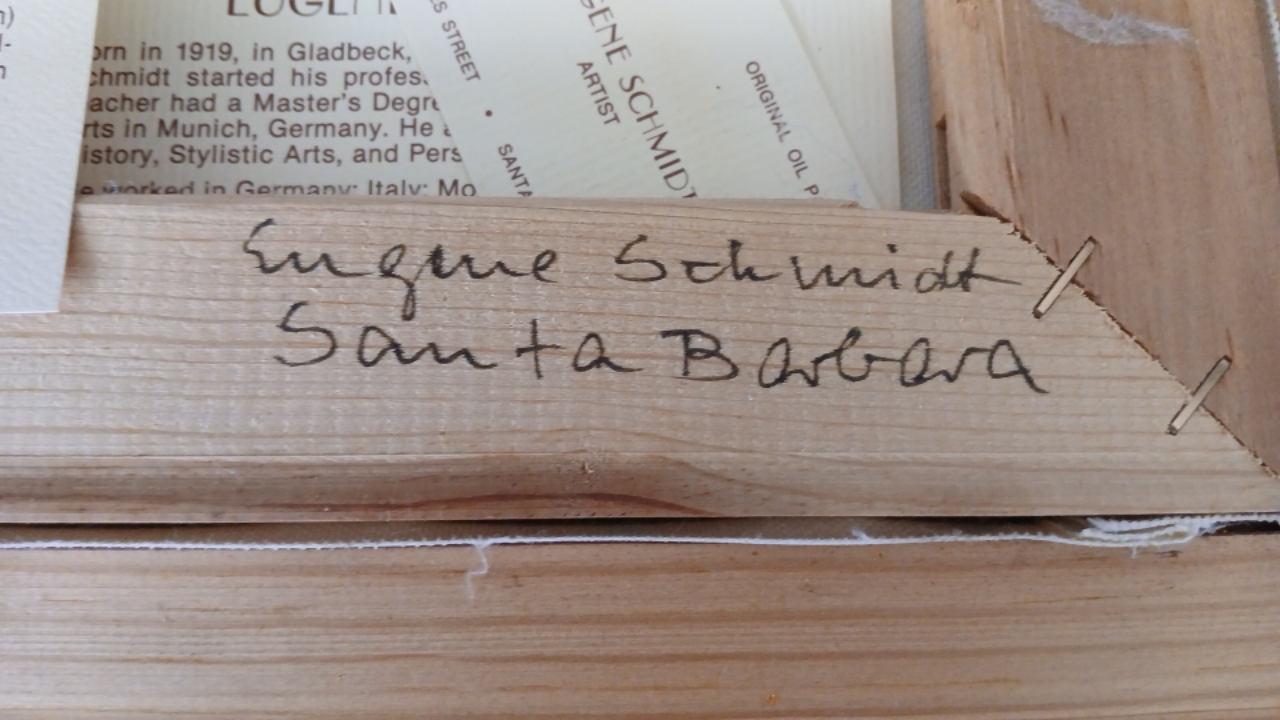 orn in 1919, in Gladbeck,
chmidt started his profes
acher had a Master's Degre
rts in Munich, Germany. He
istory, Stylistic Arts, and Pers
e worked in Germany; Italy; Mo
STREET • SANTA
GENE SCHMIDT
ARTIST
ORIGINAL OIL P
Eugene Schmidt
Santa Barbara